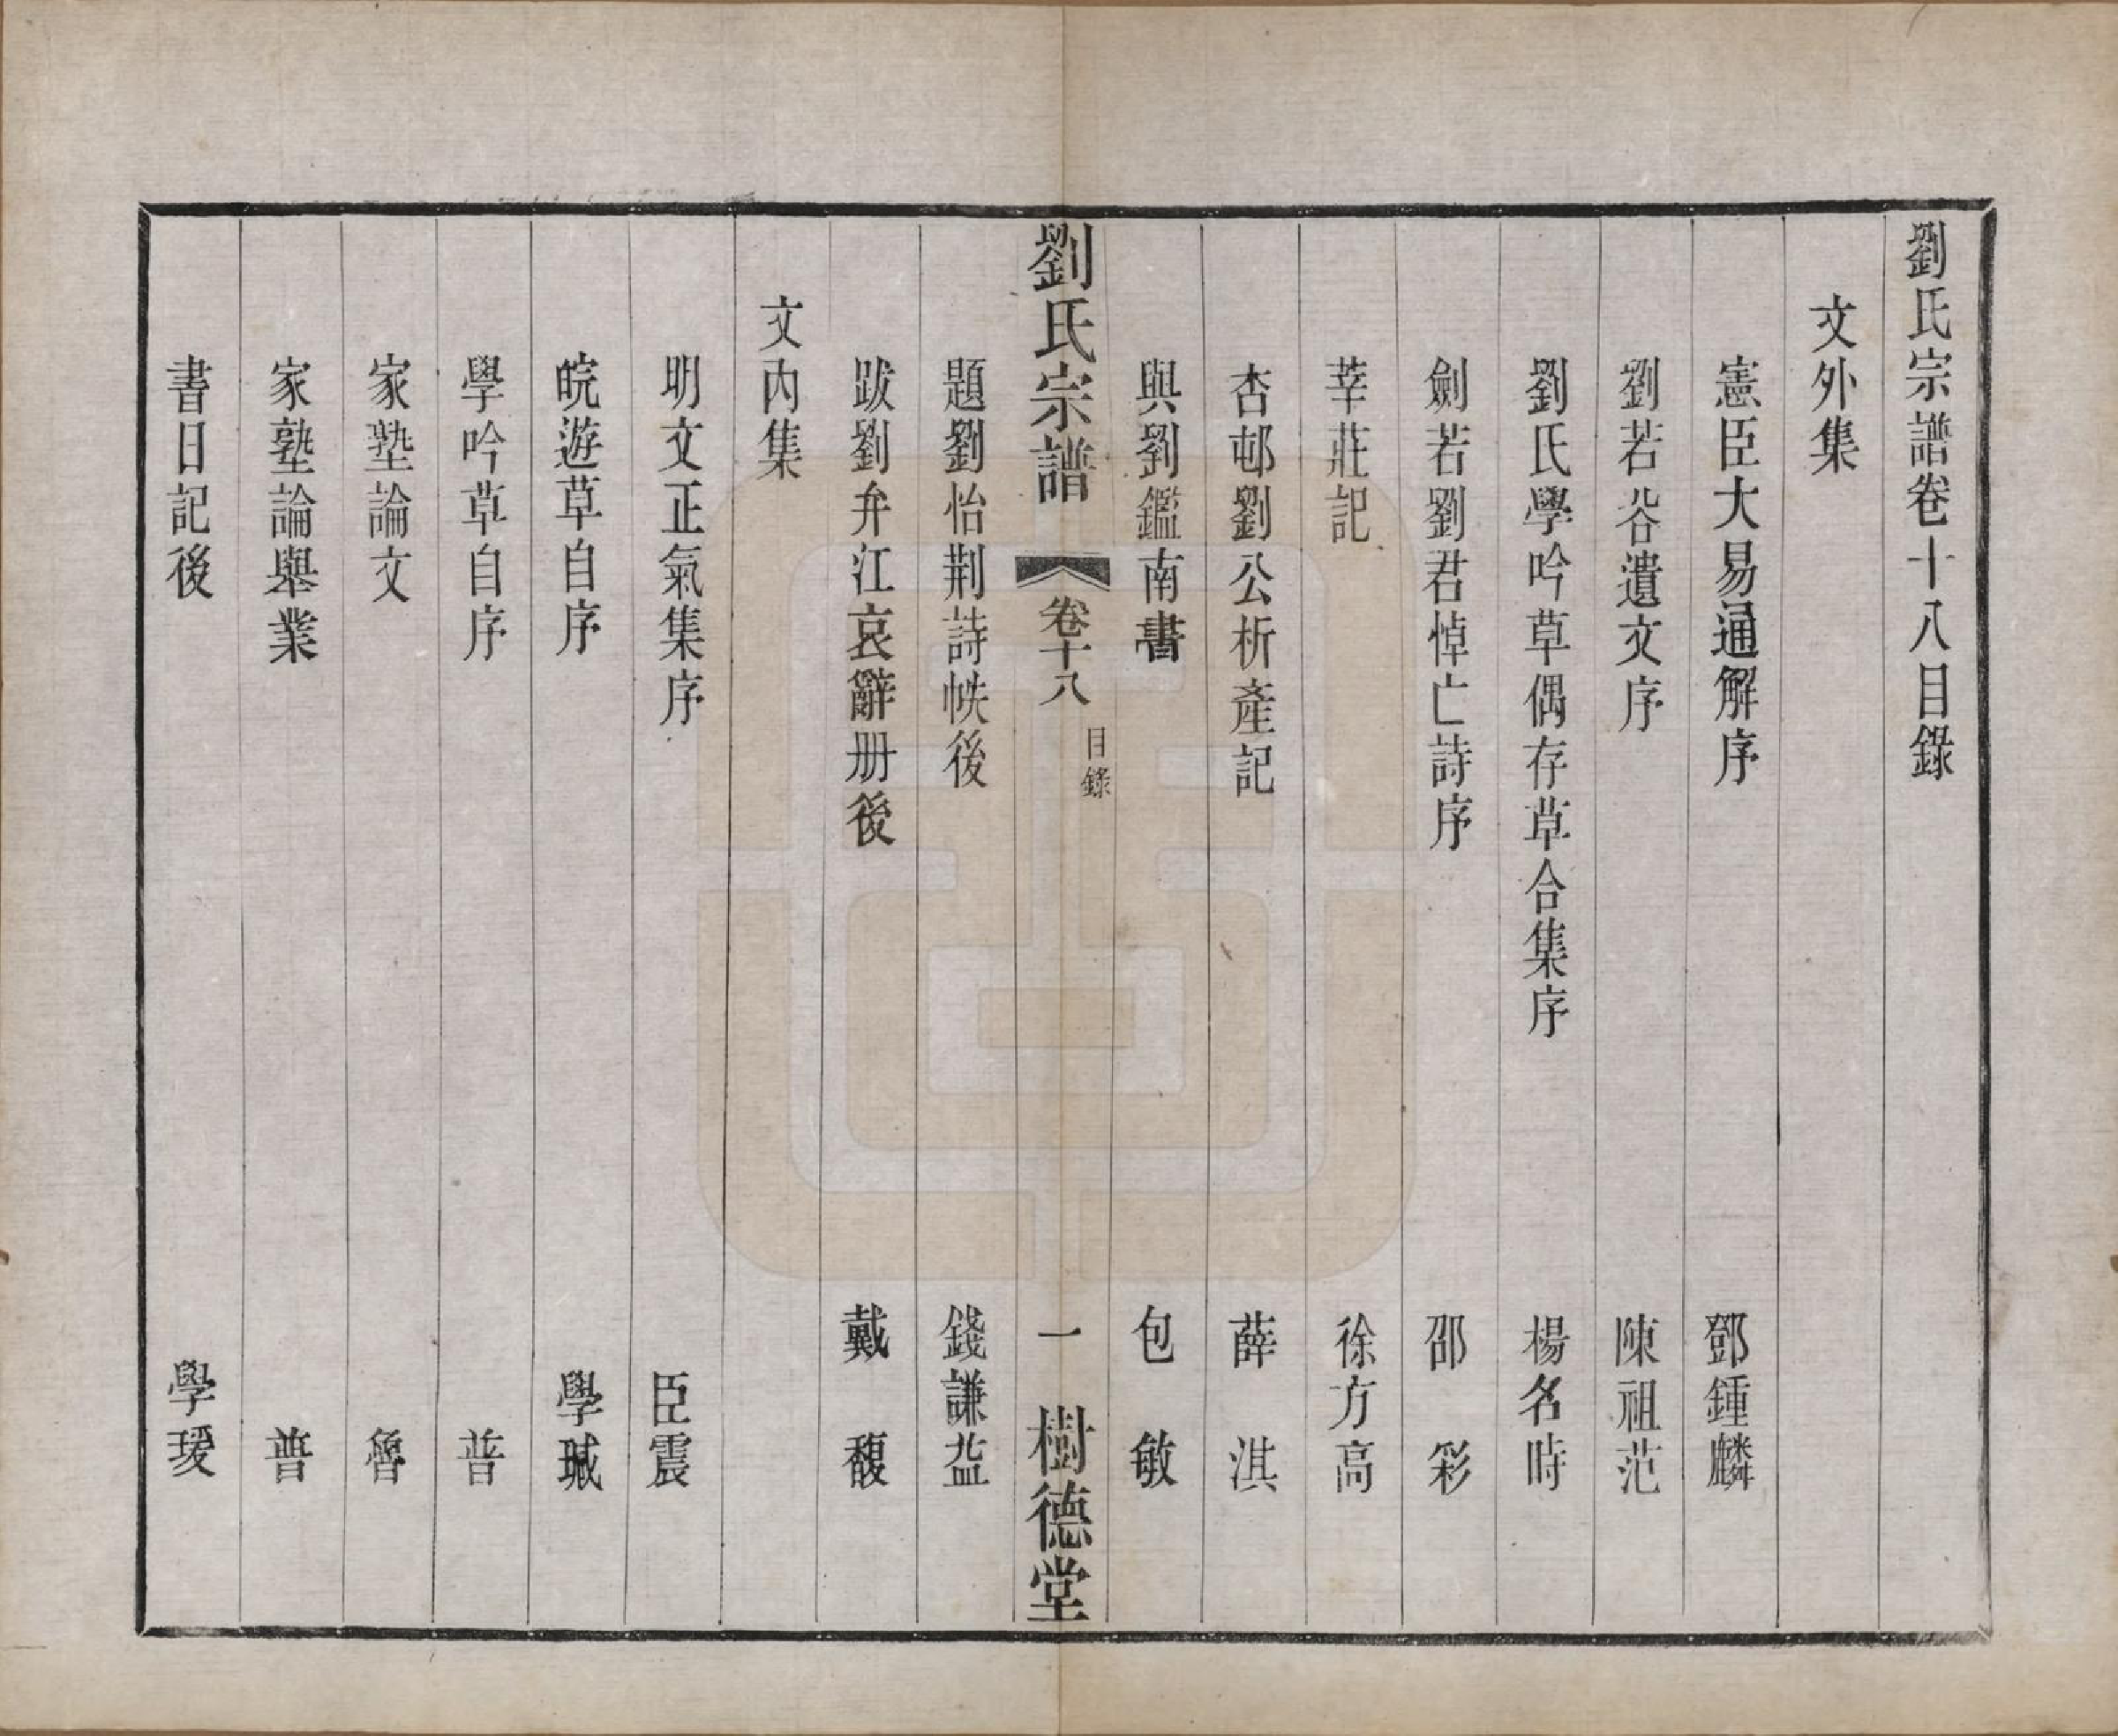 劉氏宗譜卷十八目錄
文外集
憲臣大易通解序 鄧鍾麟
劉若谷遺文序 陳祖范
劉氏學吟草偶存草合集序 楊名時
劍若劉君悼亡詩序 邵 彩
莘莊記 徐方高
杏邨劉公析產記 薛 淇
與劉鑑南書 包 敏
劉氏宗譜 卷十八 目錄 一 樹德堂
題劉怡荆詩帙後 錢謙益
跋劉弁江哀辭册後 戴 馥
文内集
明文正氣集序 臣震
皖遊草自序 學瑊
學吟草自序 普
家塾論文 魯
家塾論舉業 普
書日記後 學瑗